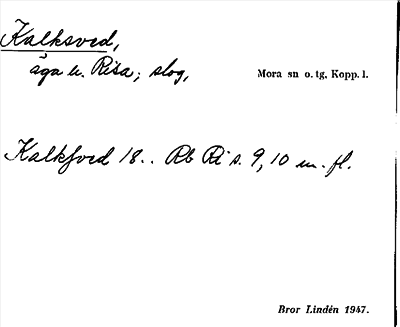 Kalksved,
äga u. Risa; slog,
Mora sn o. tg, Kopp. l.
Kalksved 18.. Rb Ri s. 9, 10 m. fl.
Bror Lindén 1947.